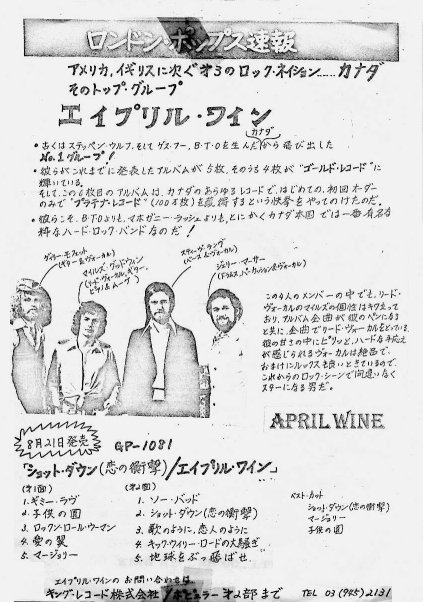 ロンドン・ポップス速報
アメリカ、イギリスに次ぐオ3のロック・ネイション.....カナダ
そのトップ・グループ
エイプリル・ワイン
カナダ
・古くはステッペン・ウルフ、そしてゲス・フー、B・T・Oを生んだから飛び出した
No.1グループ!
・彼らがこれまでに発表したアルバムが5枚、そのうち4枚が"ゴールド・レコード"に
輝いている。
そして、この6枚目のアルバムは、カナダのあらゆるレコードで、はじめての、初回オーダー
のみで"プラチナ・レコード"(100万枚)を獲得するという快挙をやってのけたのだ。
・彼らこそ、B・T・Oよりも、マホガニー・ラッシュよりも、とにかくカナダ本国では一番有名な
ハード・ロック・バンドなのだ!
ゲリー・モフェット
(ギター&ヴォーカル)
マイルズ・グッドウィン
(リード・ヴォーカル、ギター、
ピアノ&ムーグ)
スティーヴ・ラング
(ベース&ヴォーカル)
ジェリー・マーサー
(ドラムス、パーカッション&ヴォーカル)
この4人のメンバーの中でも、リード・
ヴォーカルのマイルズの個性はキワ立って
おり、アルバム全曲が彼のペンになる
と共に、全曲でリード・ヴォーカルをとっている。
彼の甘さの中にピリッと、ハードな手応え
が感じられるヴォーカルは絶品で、
おまけにルックスも良いときているので、
これからのロック・シーンで間違いなく
スターになる男だ。
APRIL WINE
8月21日発売
GP-1081
「ショット・ダウン(恋の衝撃)/エイプリル・ワイン」
(オ1面)
1. ギミー・ラヴ
2. 子供の園
3. ロックン・ロール・ウーマン
4. 愛の翼
5. マージョリー
(オ2面)
1. ソー・バッド
2. ショット・ダウン(恋の衝撃)
3. 歌のように、恋人のように
4. キック・ウィリー・ロードの大騒ぎ
5. 地球をぶっ飛ばせ
ベスト・カット
ショット・ダウン(恋の衝撃)
マージョリー
子供の園
エイプリル・ワインのお問い合わせは
キング・レコード株式会社 ポピュラーオ2部まで TEL 03(945)2131